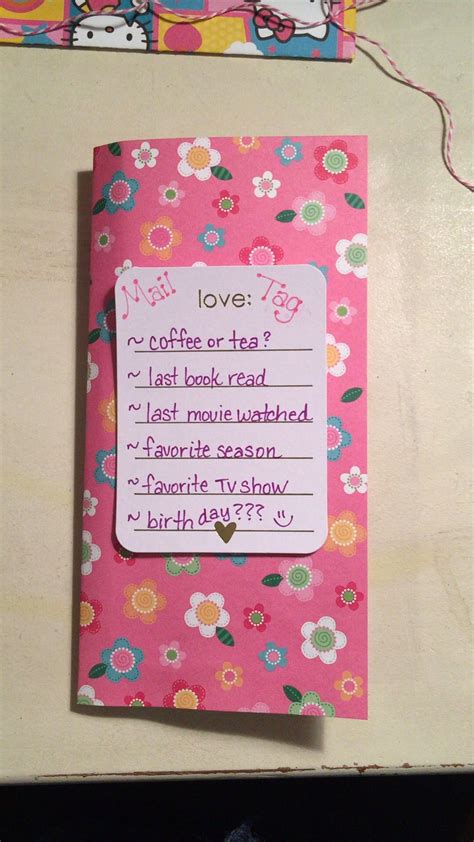 Mail love: Tag
~ coffee or tea?
~ last book read
~ last movie watched
~ favorite season
~ favorite TV show
~ birthday??? ☺